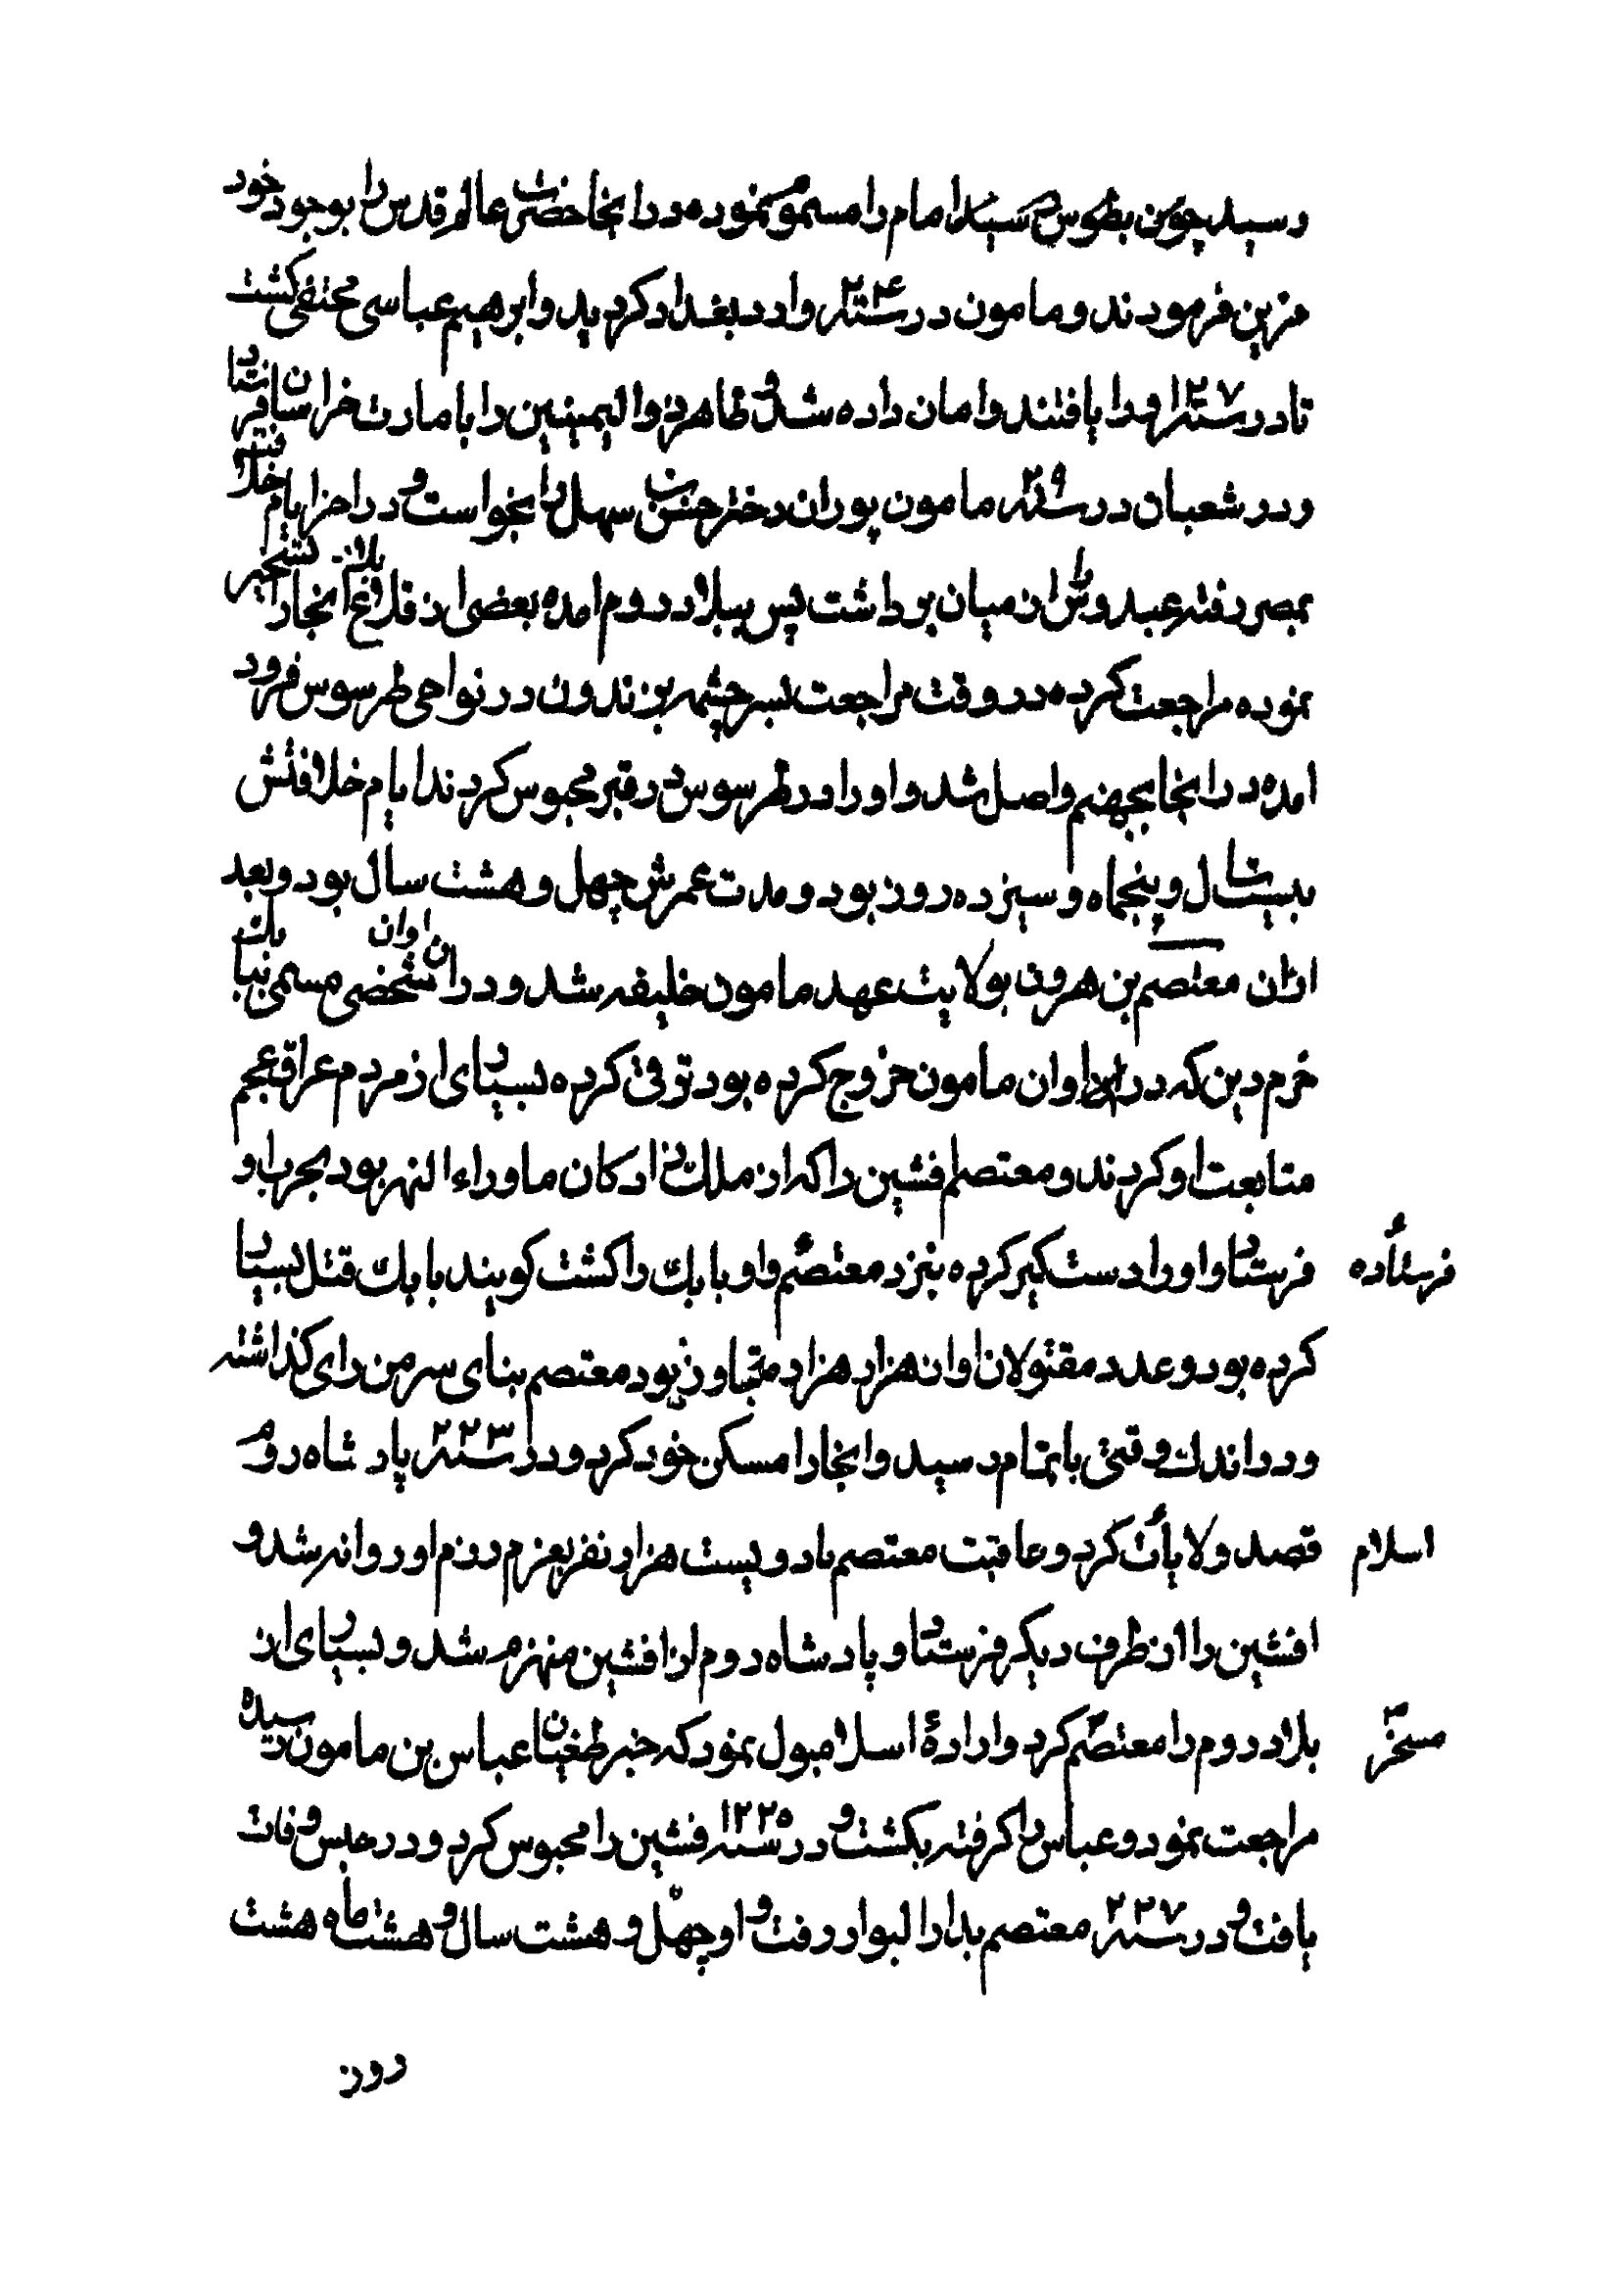 رسید چون بطوس رسید امام را مسموم نموده در انجا حضرت عالم قدس را بوجود خود
مزین فرمودند و مامون در سنه ۲۰۴ وارد بغداد کردید و ابرهیم عباسی مختفی کشت
تا در سنه ۲۰۷ او را یافتند و امان داده شد و طاهر ذوالیمینین را بامارت خراسان فرستاد
و در شعبان در سنه ۲۰۹ مامون پوران دختر حسن بن سهل را بخواست و در اخر ایام خلافتش
بمصر رفته عبدوس را از میان برداشت پس ببلاد روم امده بعضی از قلاع بلاد انجا را تسخیر
نموده مراجعت کرده در وقت مراجعت بسر چشمه بزندون در نواحی طرسوس فرود
امده در انجا بجهنم واصل شد و او را در طرسوس در قبر محبوس کردند ایام خلافتش
بیست سال و پنجماه و سیزده روز بود و مدت عمرش چهل و هشت سال بود و بعد
ازان معتصم بن هرون بولایت عهد مامون خلیفه شد و در ان اوان شخصی مسمی ببابک
خرم دین که در اوان مامون خروج کرده بود ترقی کرده بسیاری از مردم عراق عجم
متابعت او کردند و معتصم افشین را که از ملک زادکان ماوراء النهر بود بحرب او
فرستاد و او را دست کیر کرده بنزد معتصم فرستاده و او بابک را کشت کویند بابک قتل بسیار
کرده بود و عدد مقتولان او از هزار هزار متجاوز بود معتصم بنای سر من رای کذاشته
و در اندک وقتی باتمام رسید و انجا را مسکن خود کرد و در سنه ۲۲۳ پادشاه روم
قصد ولایات اسلام کرد و عاقبت معتصم با دویست هزار نفر بعزم رزم او روانه شد و
افشین را از طرف دیکر فرستاد و پادشاه روم از افشین منهزم شد و بسیاری از
بلاد روم را معتصم مسخر کرد و ارادهٔ اسلامبول نمود که خبر طغیان عباس بن مامون رسیده
مراجعت نمود و عباس را کرفته بکشت و در سنه ۲۲۵ افشین را محبوس کرد و در حبس وفات
یافت و در سنه ۲۲۷ معتصم بدار البوار رفت و او چهل و هشت سال و هشت ماه هشت
روز